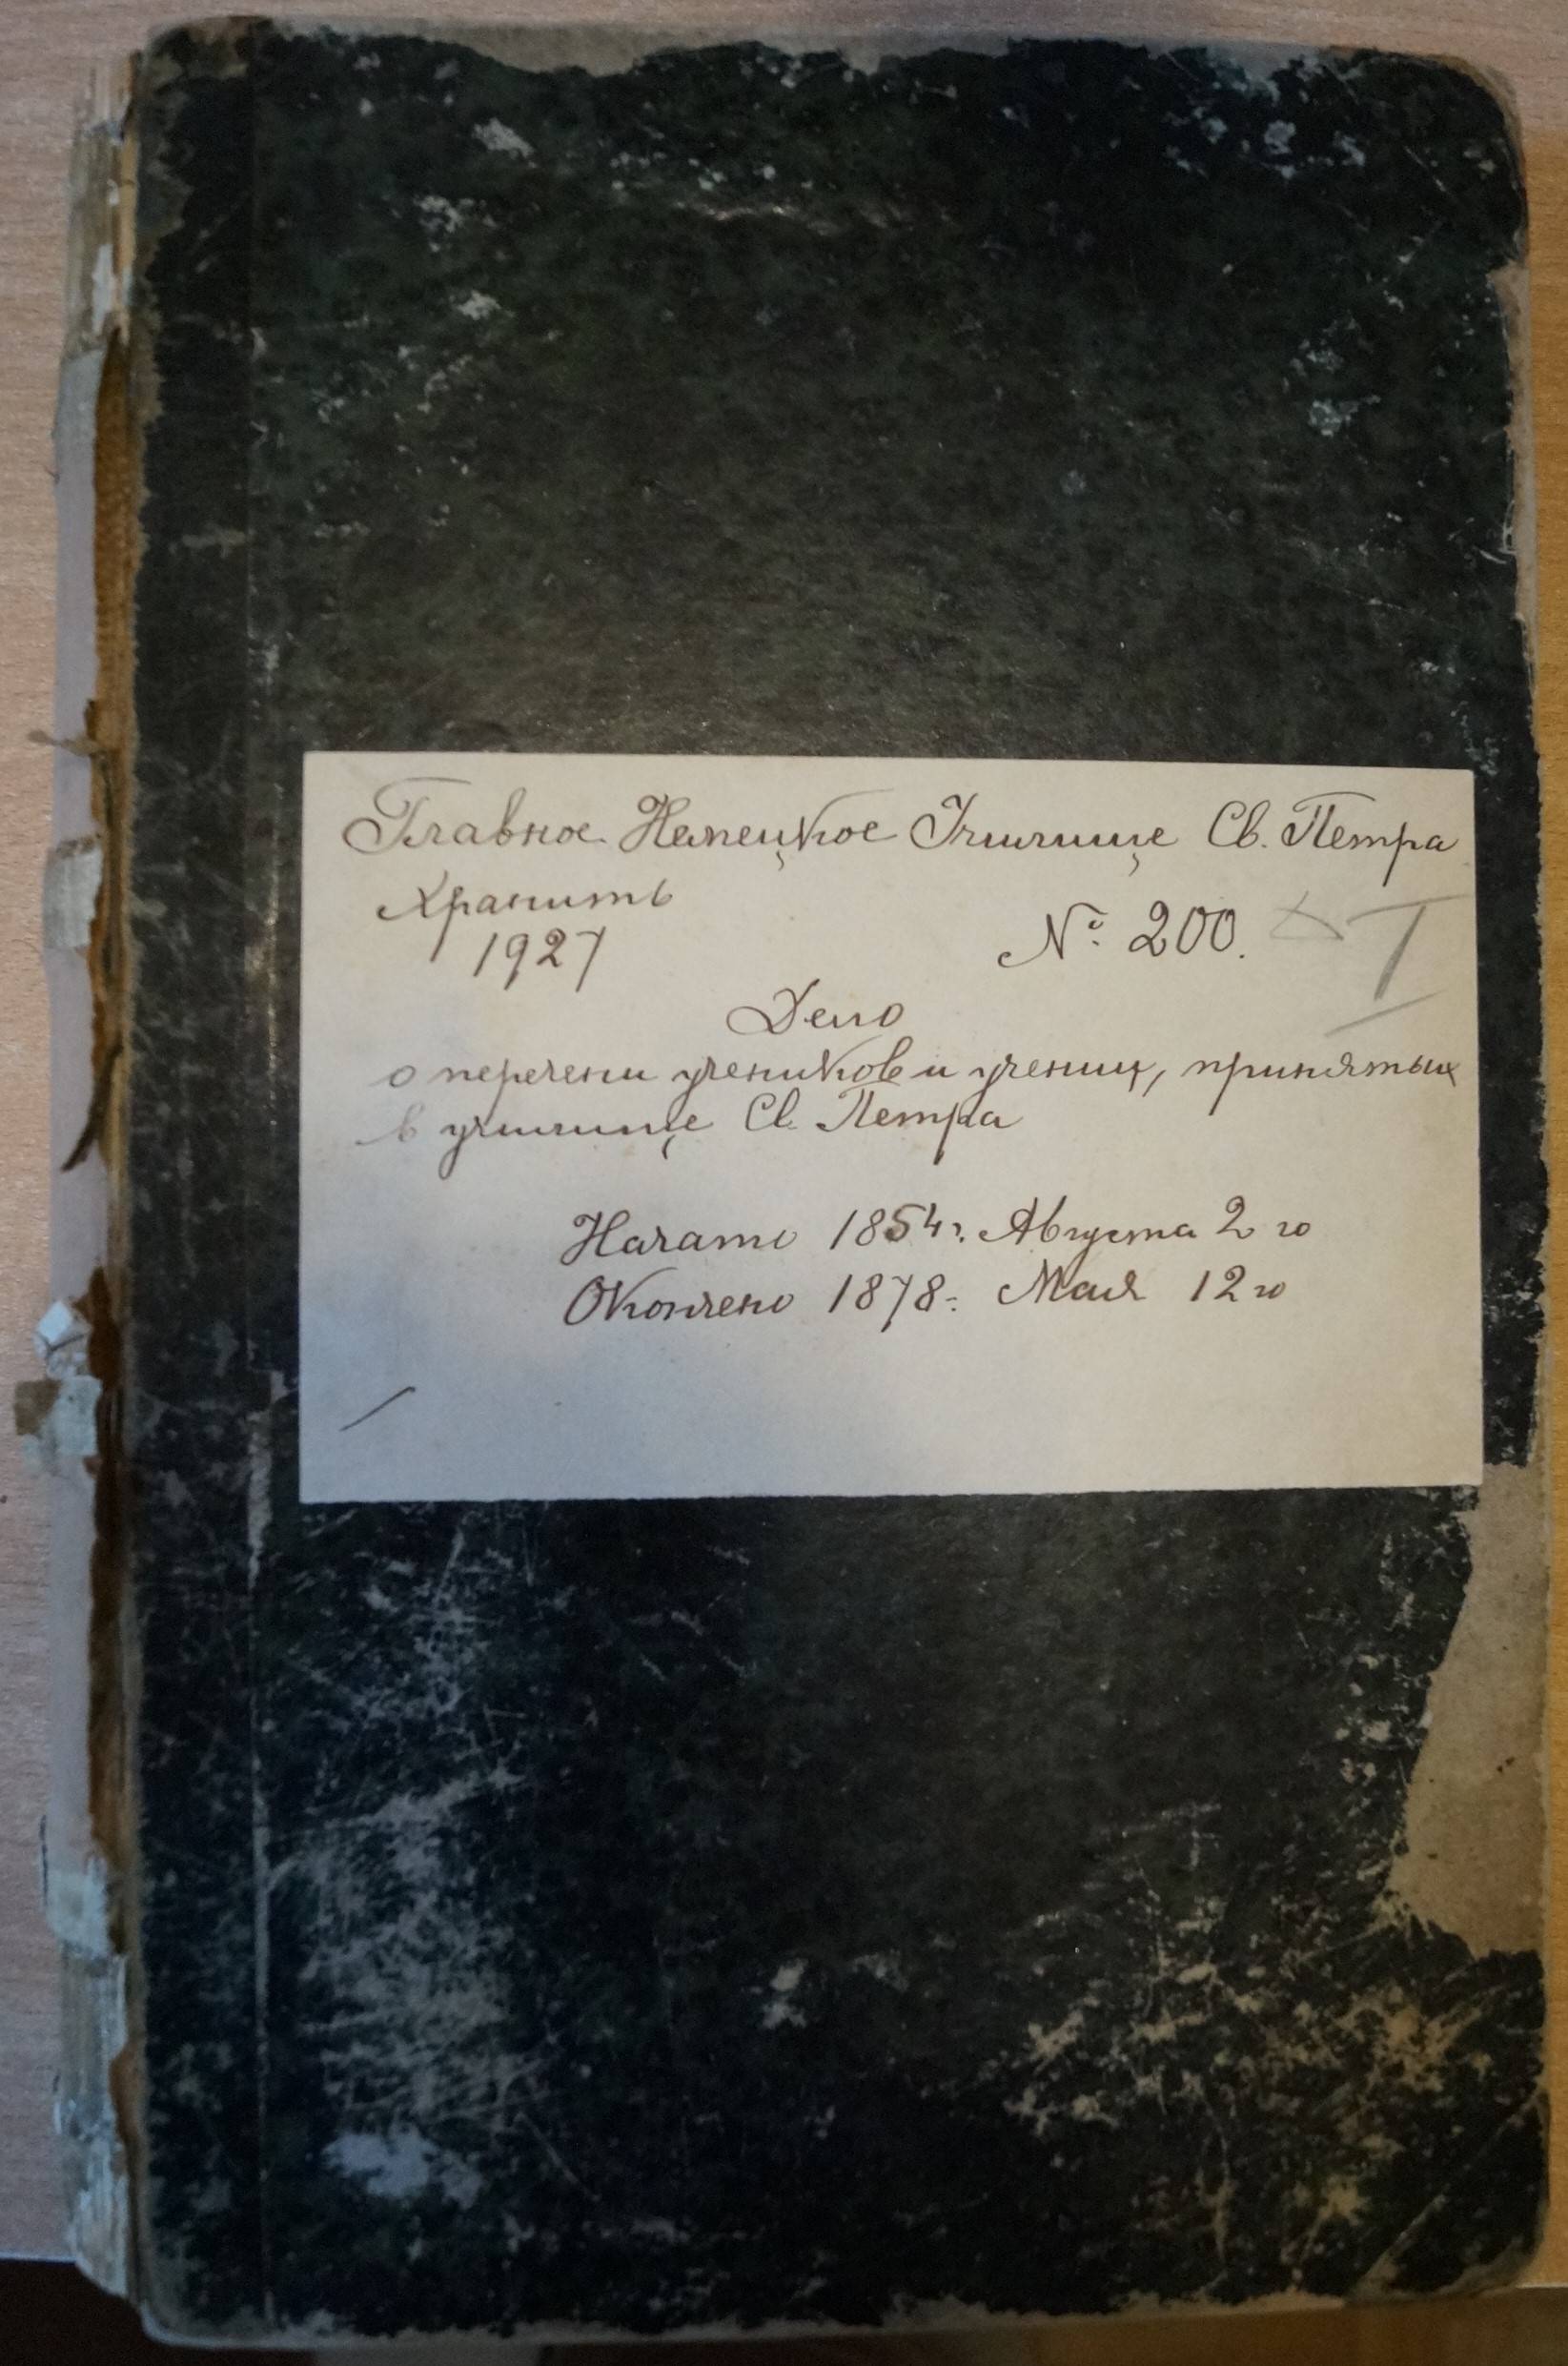 Главное Немецкое Училище Св. Петра
Хранить
1927
№ 200. I
Дело
о перечени учеников и учениц, принятых
в училище Св. Петра
Начато 1854 г. Августа 2 го
Окончено 1878 г. Мая 12 го